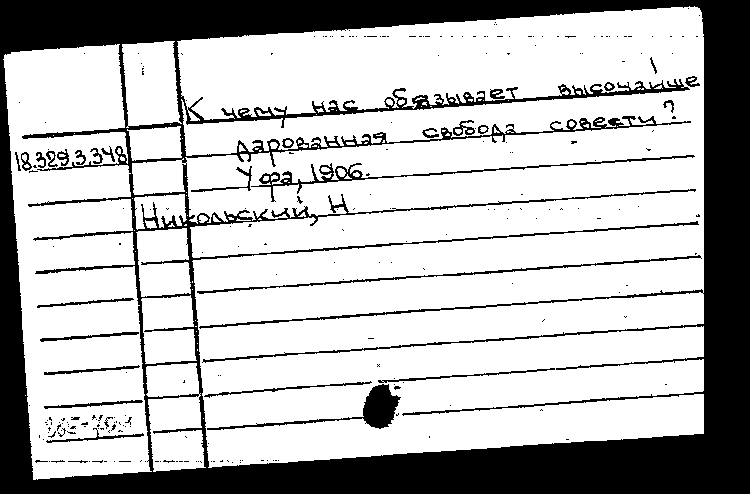 К чему нас обязывает высочайше
дарованная свобода совести?
18.329.3.348
Уфа, 1906.
Никольский, Н